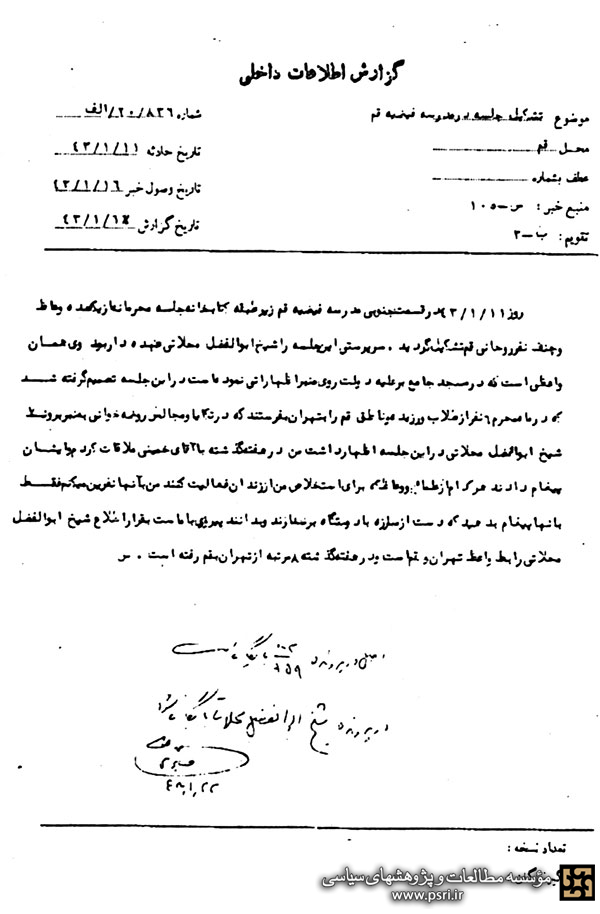 گزارش اطلاعات داخلی
موضوع تشکیل جلسه در مدرسه فیضیه قم
شماره ۲۰/۸۳۶/الف
محل قم
تاریخ حادثه ۴۳/۱/۱۱
عطف بشماره
تاریخ وصول خبر ۴۳/۱/۱۶
منبع خبر: س-۱۰۵
تاریخ گزارش ۴۳/۱/۱۷
تقویم: ب-۳
روز ۴۳/۱/۱۱ در قسمت جنوبی مدرسه فیضیه قم زیر طبقه کتابخانه جلسه محرمانه‌ از یکعده وعاظ
و چند نفر روحانی قم تشکیل گردید. سرپرستی این جلسه را شیخ ابوالفضل محلاتی عهده دار بود وی همان
واعظی است که در مسجد جامع بر علیه دولت روی منبر اظهاراتی نموده است در این جلسه تصمیم گرفته شد
که در ماه محرم ۶۰ نفر از طلاب ورزیده و ناطق قم را بتهران بفرستند که در تکایا و مجالس روضه خوانی بمنبر بروند
شیخ ابوالفضل محلاتی در این جلسه اظهار داشت من در هفته گذشته با آقای خمینی ملاقات کردم و ایشان
پیغام دادند هر کدام از علماء و وعاظ که برای استخلاص من از زندان فعالیت کنند من بآنها نفرین میکنم فقط
بآنها پیغام بدهید که دست از مبارزه با دستگاه برندارند و بدانند پیروزی با ماست بقرار اطلاع شیخ ابوالفضل
محلاتی رابط وعاظ تهران و قم است و در هفته گذشته ۸ مرتبه از تهران بقم رفته است. س
اصل در پرونده بایگانی است
در پرونده شیخ ابوالفضل محلاتی بایگانی شود
تعداد نسخه:
مؤسسه مطالعات و پژوهشهای سیاسی
www.psri.ir